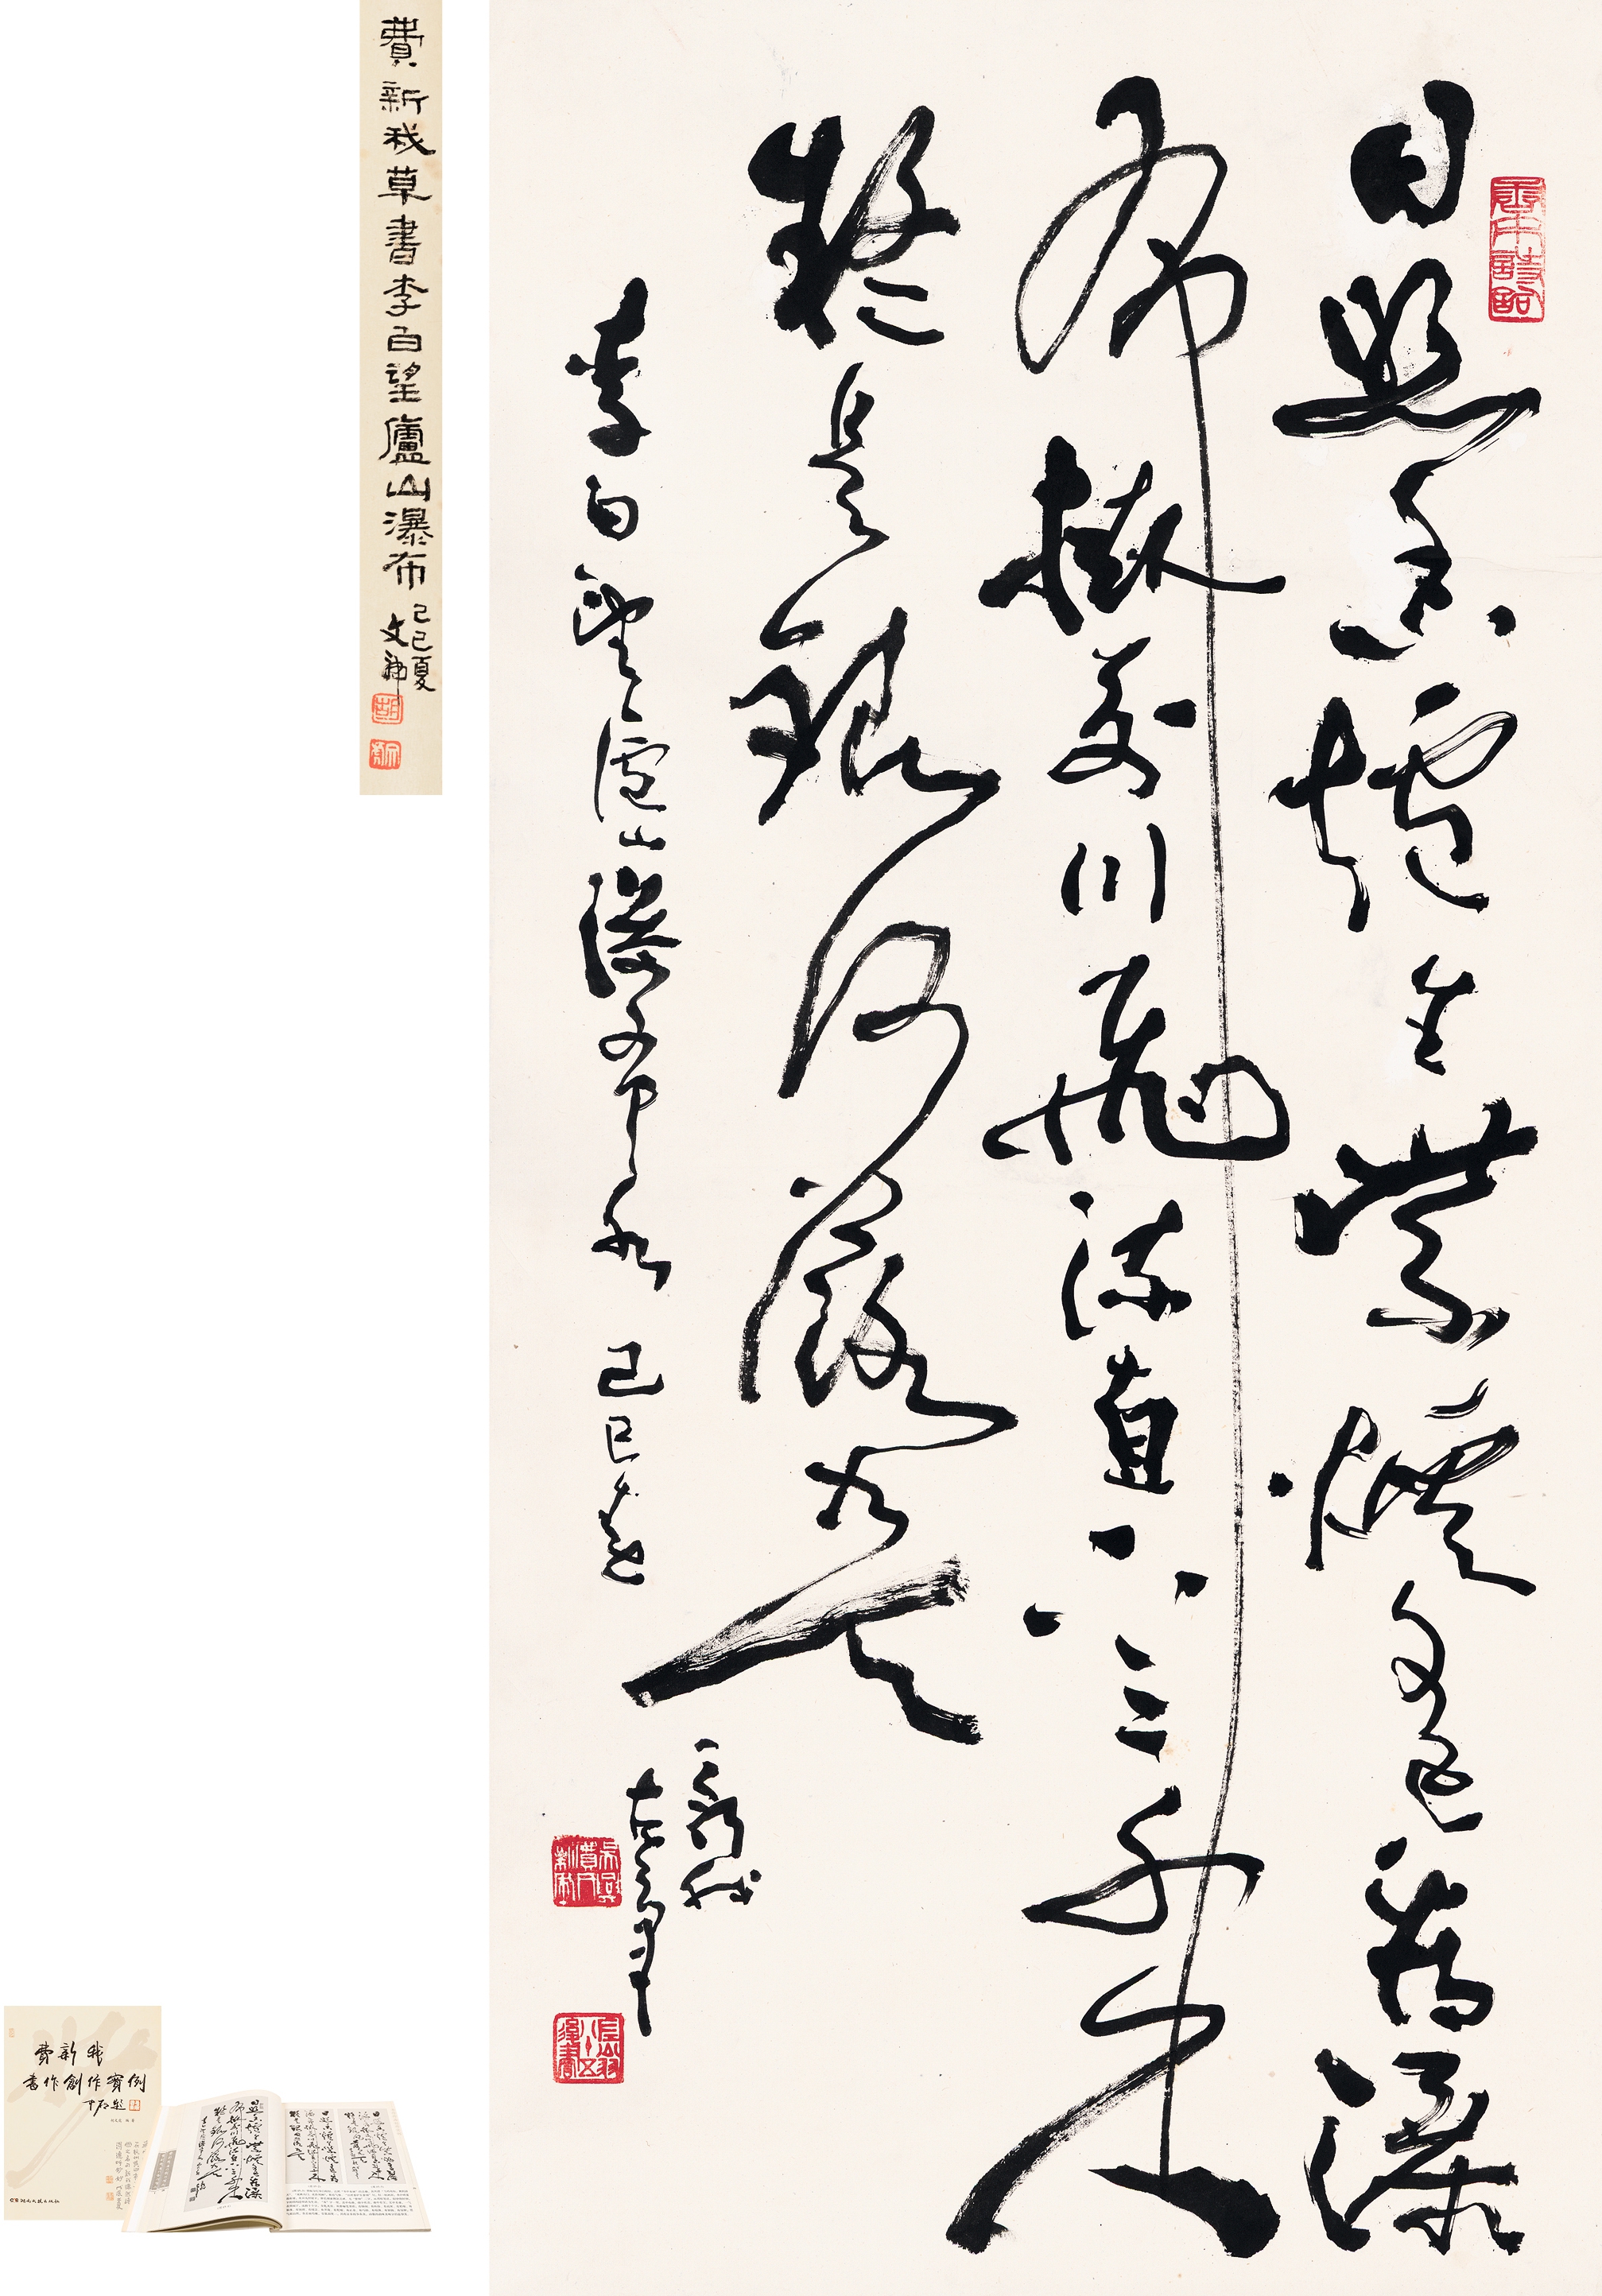 日照香爐生紫煙遙看瀑
布掛前川飛流直下三千尺
疑是銀河落九天
李白望廬山瀑布水 己巳春
新我
左筆
費新我草書李白望廬山瀑布
己巳夏
費新我
書作創作實例